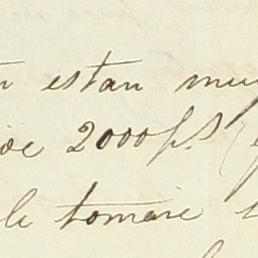 n estan muy
ioe 2000 p.s (
le tomare